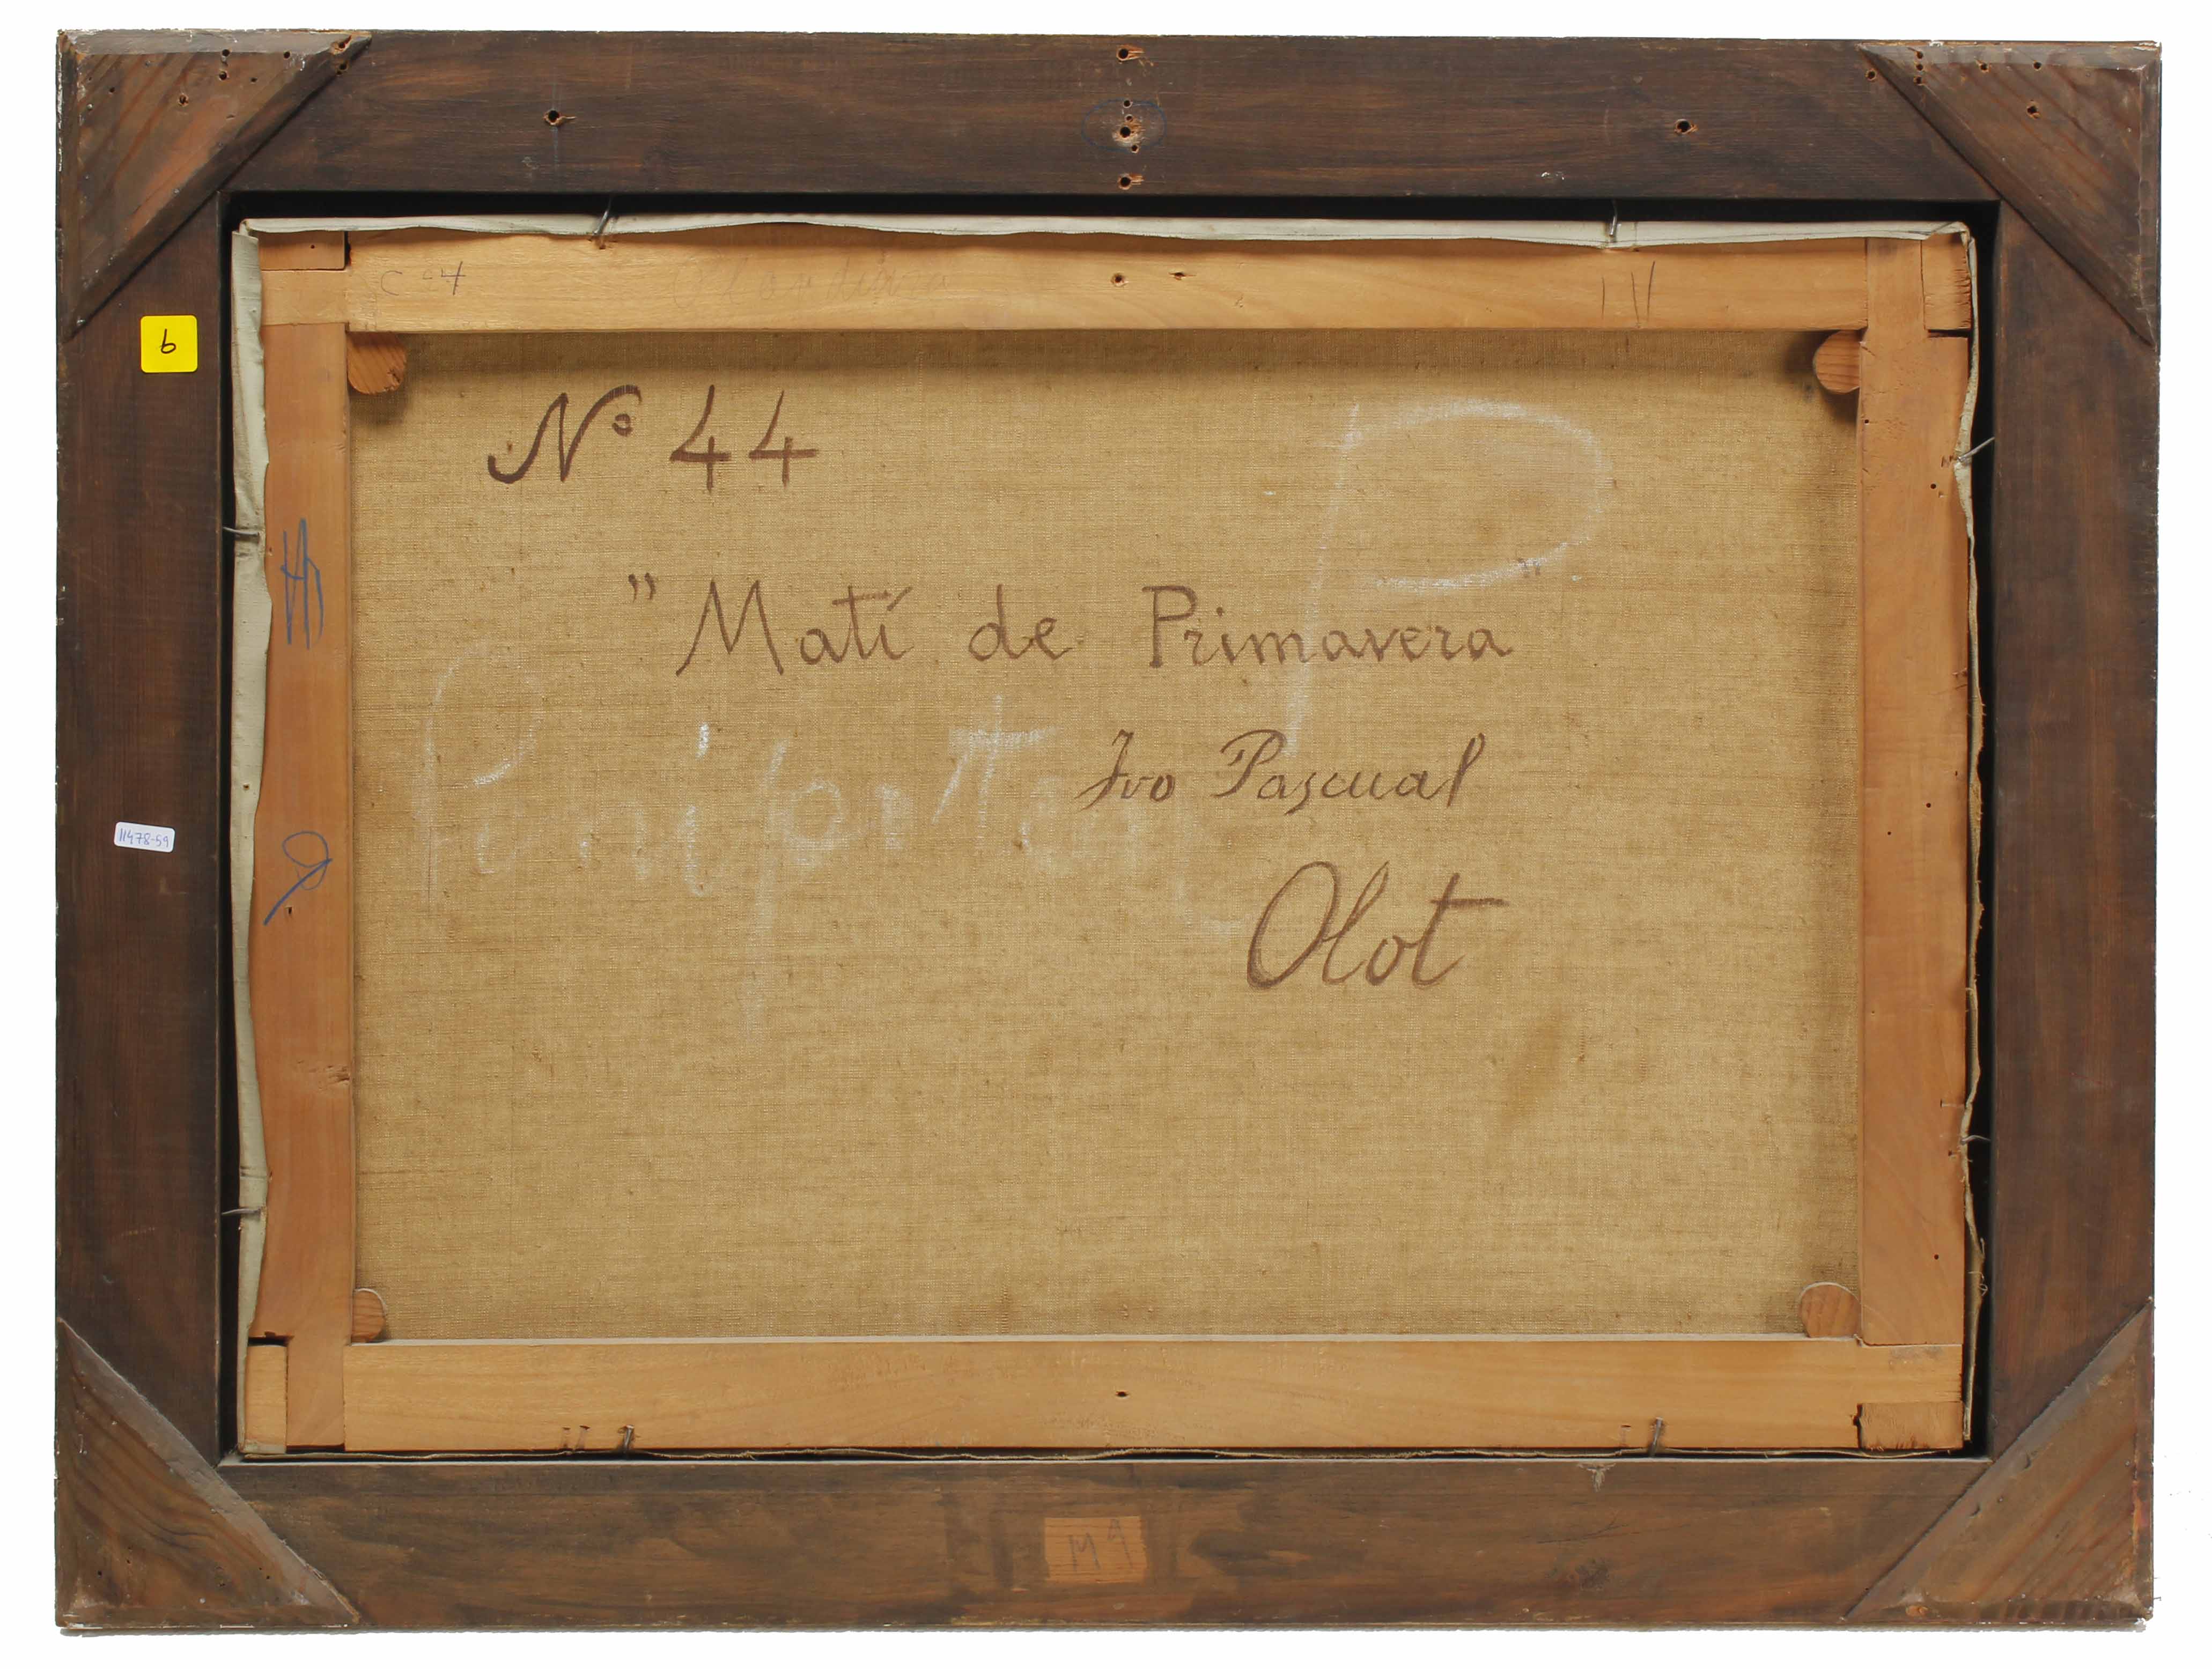 C 4
6
Nº 44
" Matí de Primavera "
Ivo Pascual
P
Olot
11478-59
M 4